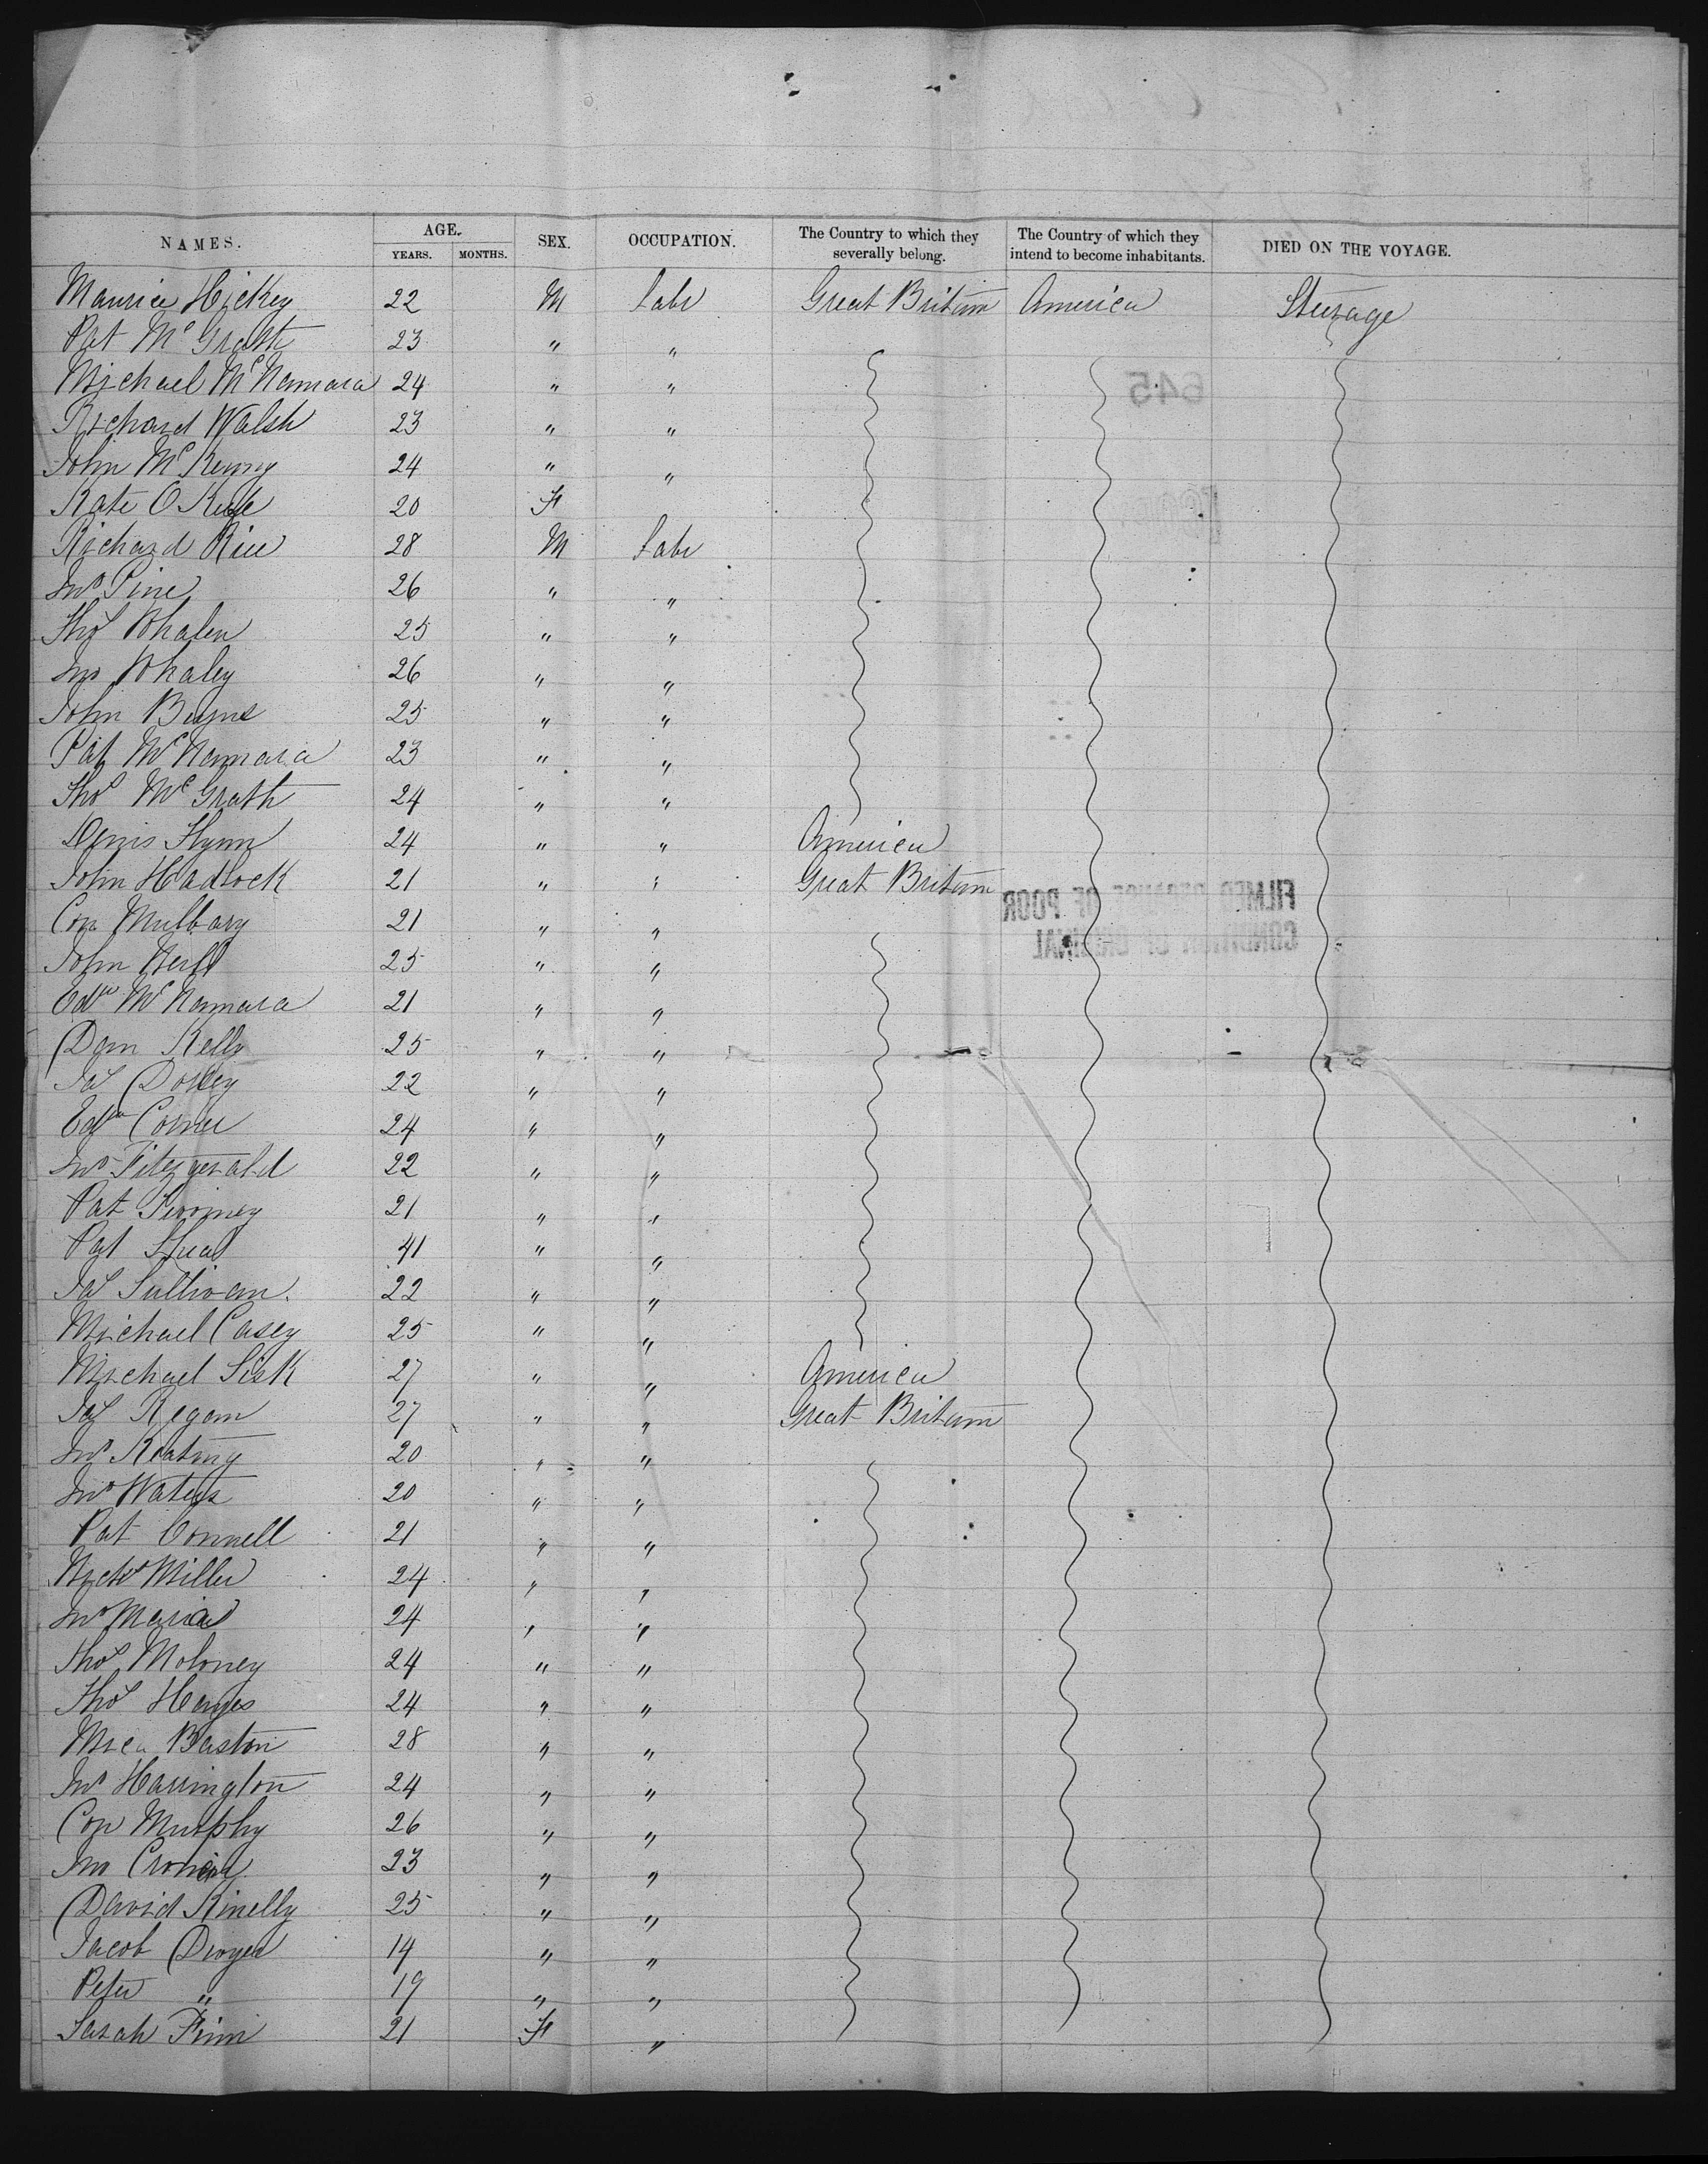 NAMES. AGE. SEX. OCCUPATION. The Country to which they severally belong. The Country of which they intend to become inhabitants. DIED ON THE VOYAGE.
YEARS. MONTHS.
Maurice Hickey 22 M Labr Great Britain America Steerage
Pat McGrath 23 " "
Michael McNamara 24 " "
Richard Walsh 23 " "
John McKenny 24 " "
Kate O Keefe 20 F
Richard Rice 28 M Labr
Jno Pine 26 " "
Thos Whalen 25 " "
Jno Whaley 26 " "
John Burns 25 " "
Pat McNamara 23 " "
Thos McGrath 24 " "
Denis Flynn 24 " " America
John Hadlock 21 " " Great Britain
Con 21 " "
John 25 " "
Edwd McNamara 21 " "
Dan Kelly 25 " "
Jas 22 " "
Edwd 24 " "
Jno Fitzgerald 22 " "
Pat Twomey 21 " "
Pat Shea 41 " "
Jas Sullivan. 22 " "
Michael Casey 25 " "
Michael Sisk 27 " " America
Jas Regan 27 " " Great Britain
Jno Keating 20 " "
Jno Waters 20 " "
Pat Connell 21 " "
Nichs Miller 24 " "
Jno 24 " "
Thos Moloney 24 " "
Thos Hayes 24 " "
Baston 28 " "
Jno Harrington 24 " "
Con Murphy 26 " "
Jno Cronin 23 " "
David Kinelly 25 " "
Jacob Dwyer 14 " "
Peter " 19 " "
Sarah Finn 21 F "
645
FILMED BECAUSE OF POOR
CONDITION OF ORIGINAL